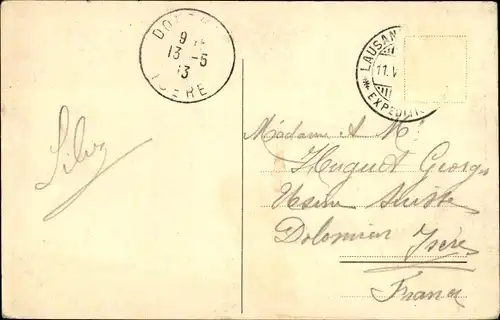 DO
9
13 - 5
13
ISERE
LAUSAN
11. V
EXPEDIT
Lily
Madame & Mr
Huguet Georges
Usine Suisse
Dolomieu Isère
France